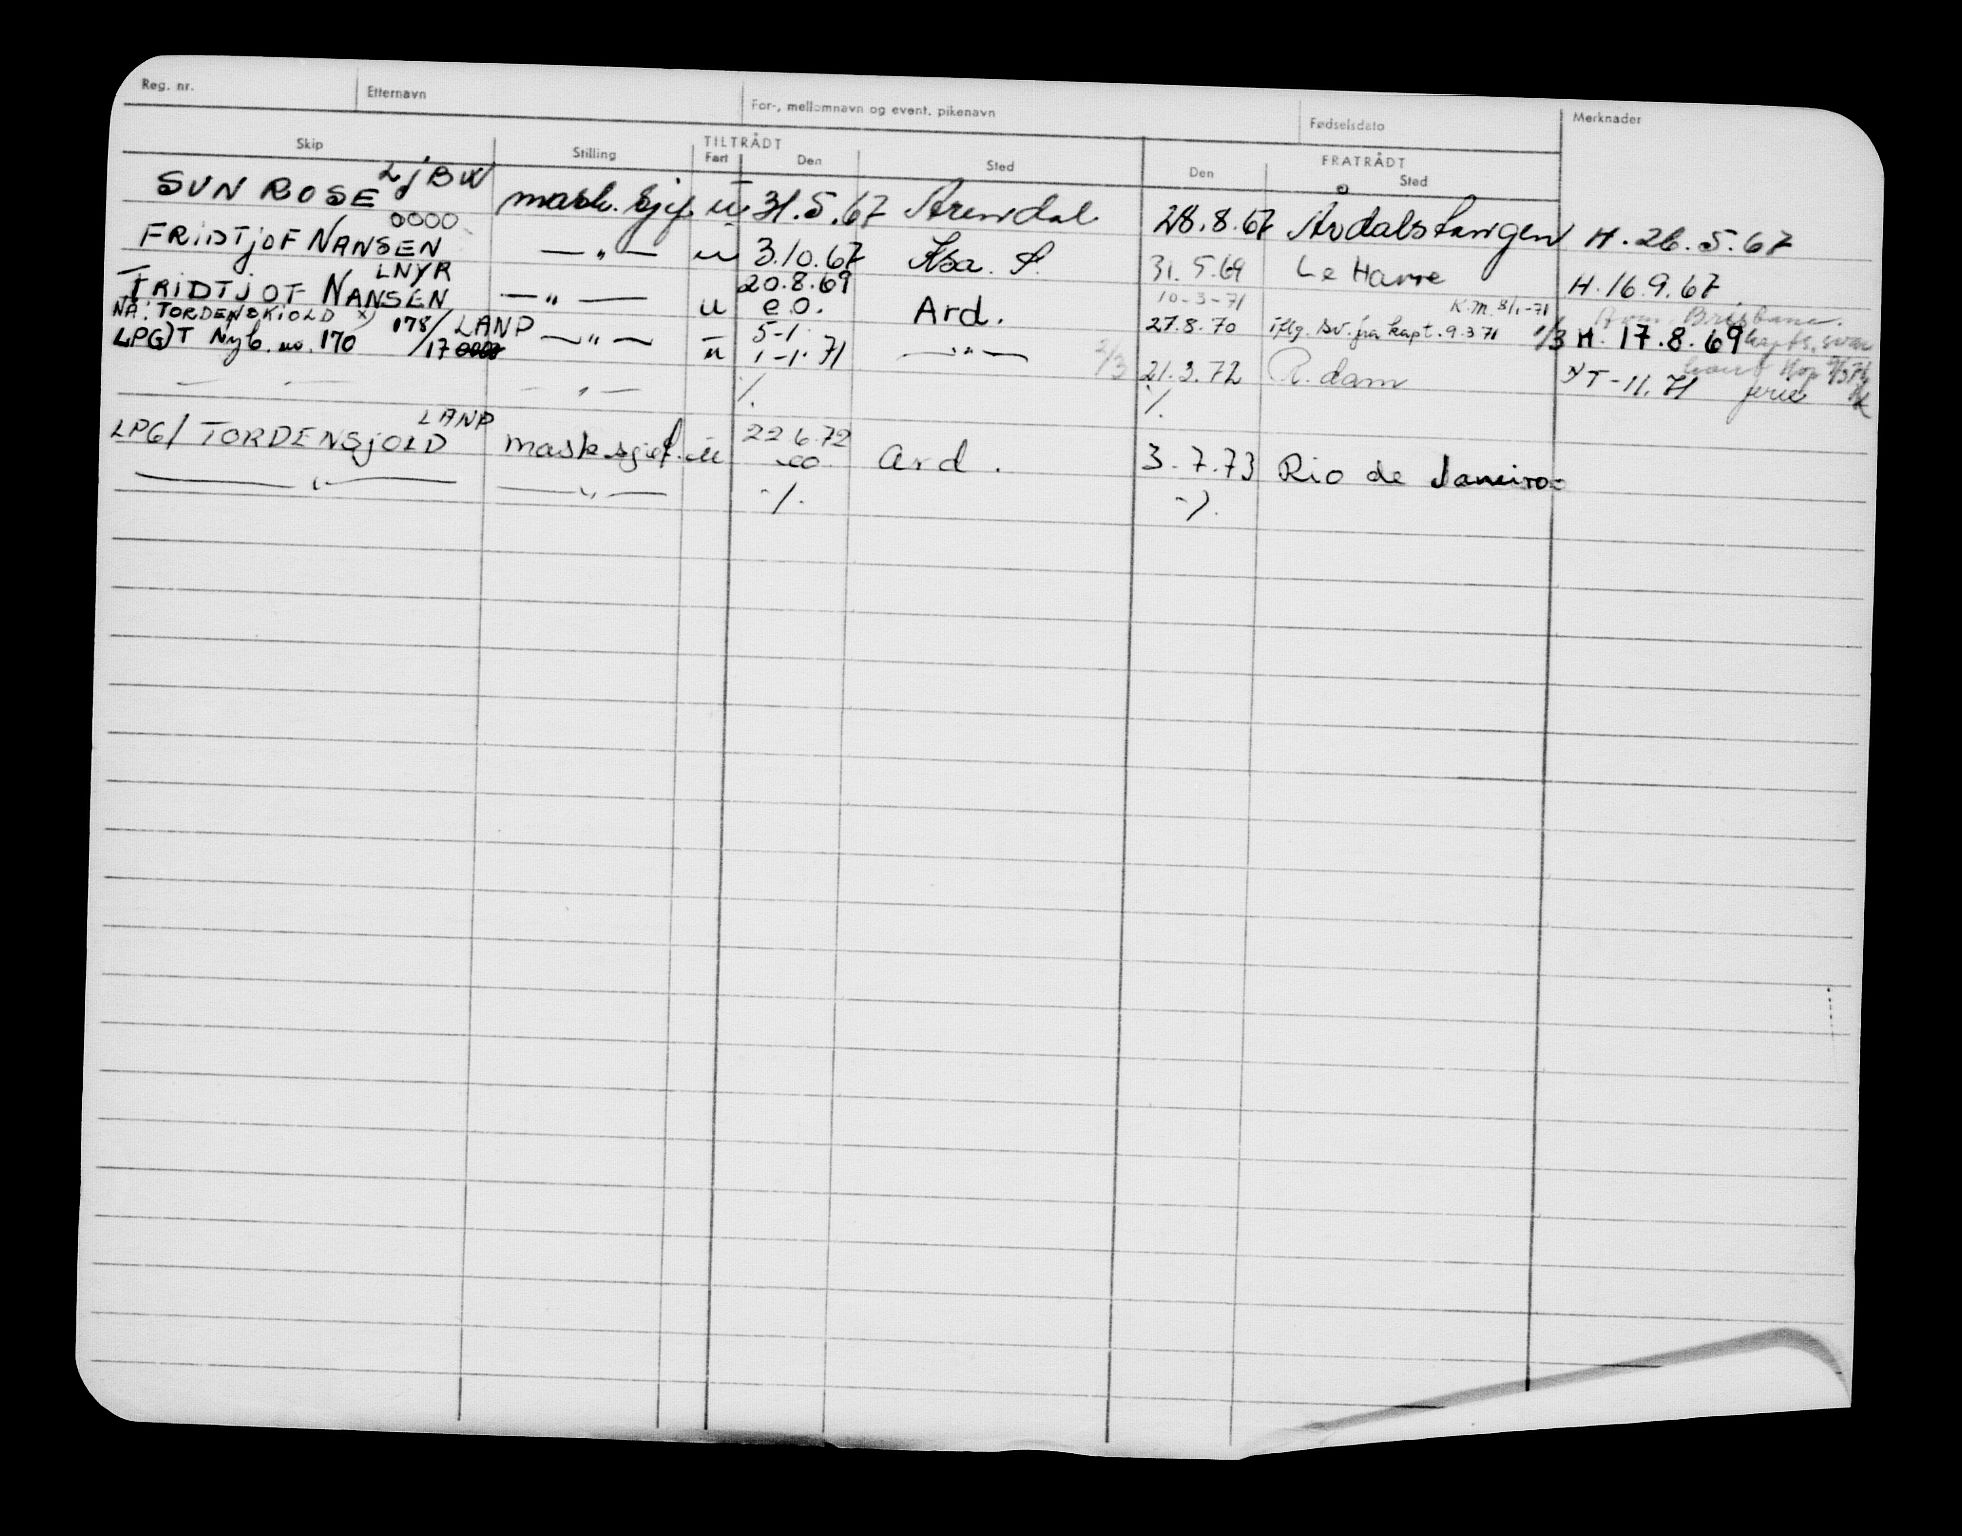 Reg. nr. Etternavn For-, mellomnavn og event. pikenavn Fødselsdato Merknader
TILTRÅDT FRATRÅDT
Skip Stilling Fart Den Sted Den Sted
LJBW
SUN ROSE mask. sjef. u 31.5.67 Arendal 28.8.67 Årdalstangen H. 26.5.67
0000
FRIDTJOF NANSEN — " — u 3.10.67 Ksa. S. 31.5.69 Le Havre H. 16.9.67
LNYR 20.8.69 10-3-71 K.M. 8/1-71 Brisbane.
FRIDTJOF NANSEN — " — u e.o. Ard. 27.8.70 iflg. sv. fra kapt. 9.3.71 1/3 H. 17.8.69
NÅ: TORDENSKIOLD x) 178/ LANP 5-1
LPG)T Nyb. no. 170 /17 0000 — " — u 1-1-71 — " — 2/3 21.3.72 R.dam x) T-11.71 ferie
— — — " — ./. ./.
LANP 22.6.72
LPG/ TORDENSJOLD mask.sjef. u eo. Ard. 3.7.73 Rio de Janeiro
— " — — " — -/. -/.